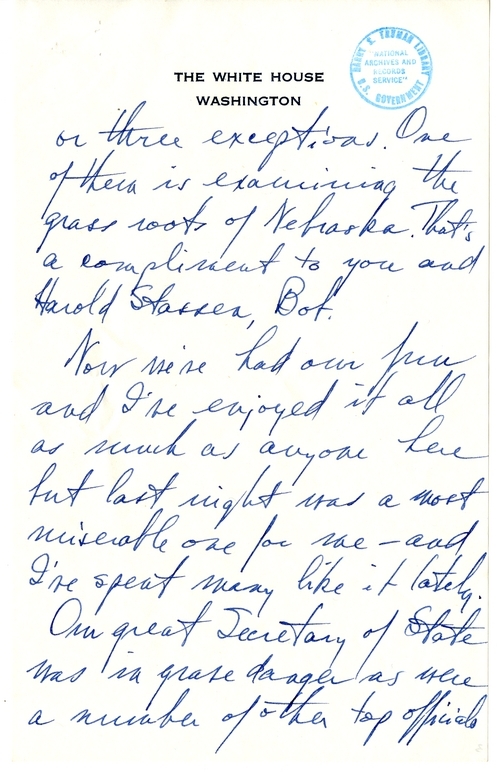 THE WHITE HOUSE
WASHINGTON
HARRY S. TRUMAN LIBRARY
"NATIONAL
ARCHIVES AND
RECORDS
SERVICE"
U.S. GOVERNMENT
or three exceptions. One
of them is examining the
grass roots of Nebraska. That's
a compliment to you and
Harold Stassen, Bob.
Now we've had our fun
and I've enjoyed it all
as much as anyone here
but last night was a most
miserable one for me – and
I've spent many like it lately.
Our great Secretary of State
was in grave danger as were
a number of other top officials